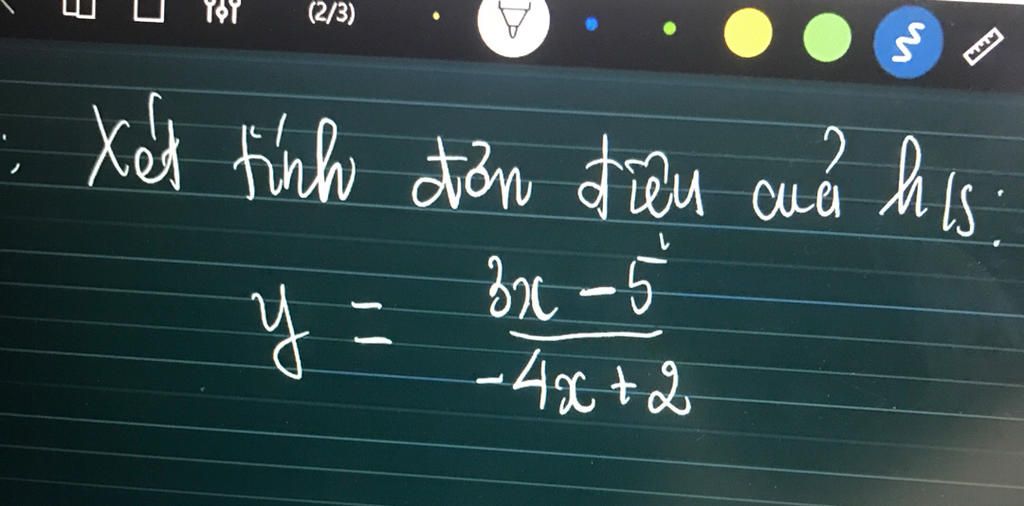 (2/3)
: Xét tính đơn điệu của h/s:
y = 3x - 5 / -4x + 2